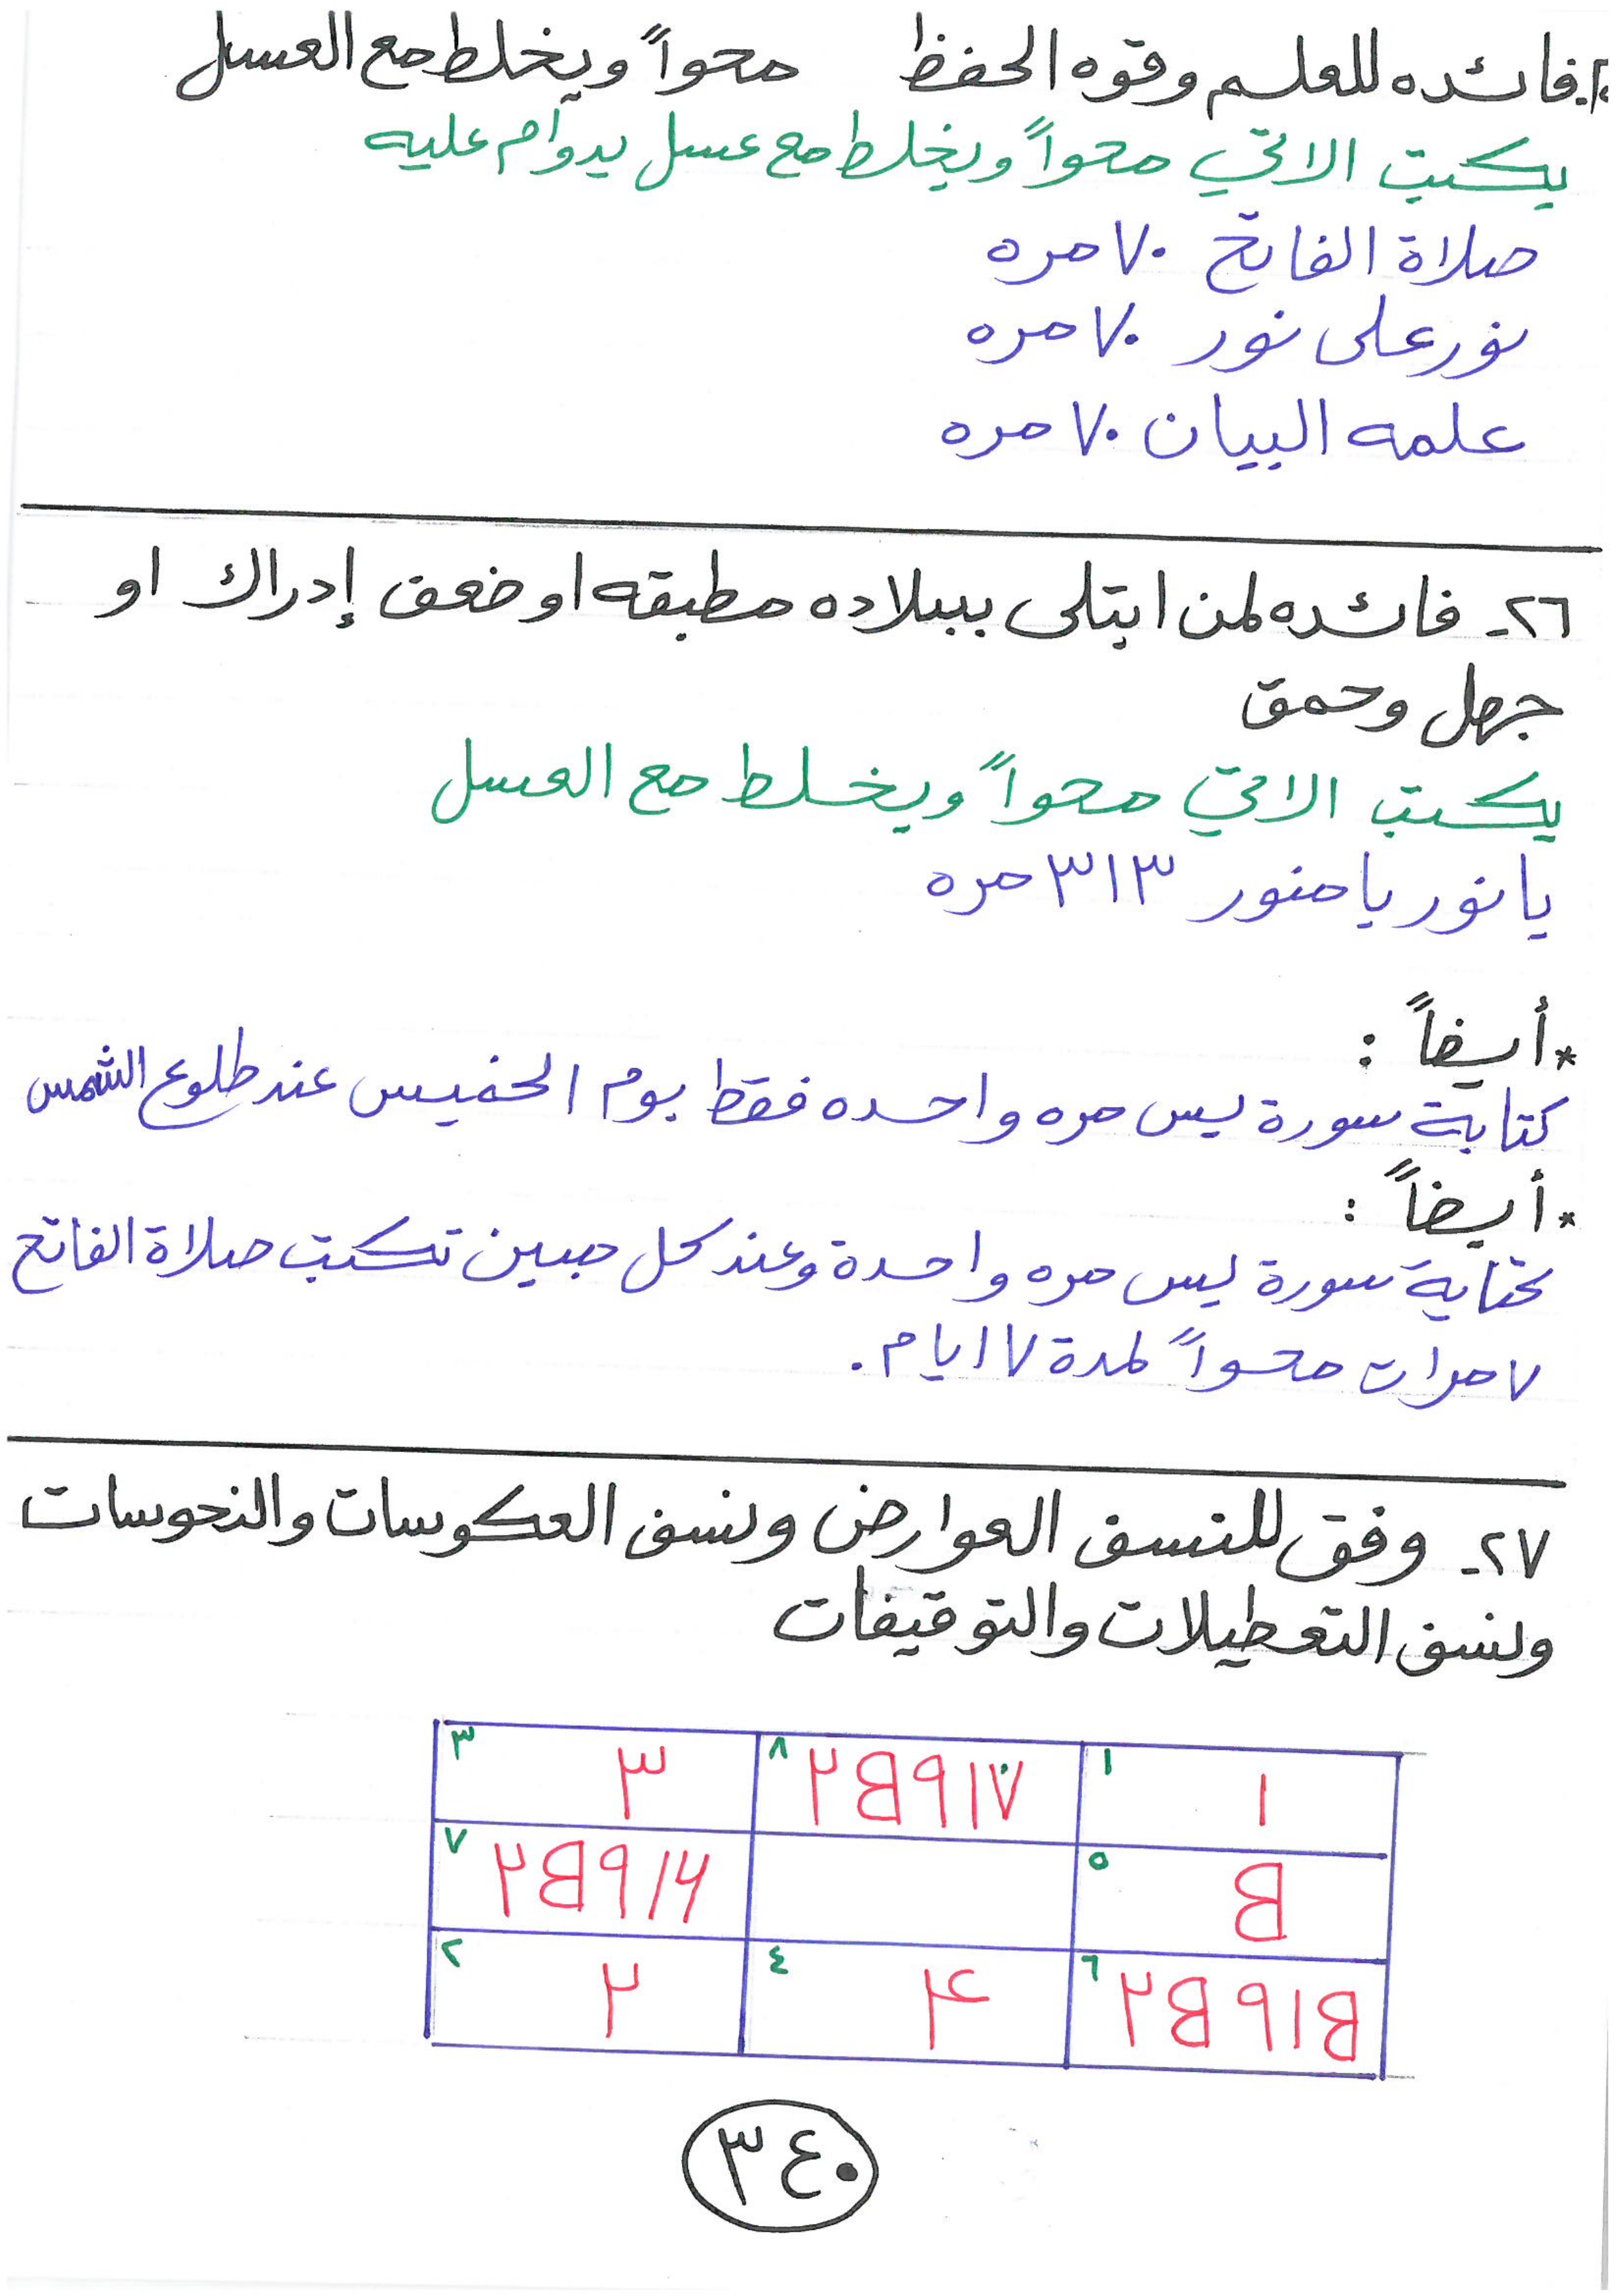 فائده للعلم وقوه الحفظ محواً ويخلط مع العسل
يكتب الاتي محواً ويخلط مع عسل يدوام عليه
صلاة الفاتح ٧٠ مره
نور على نور ٧٠ مره
علمه البيان ٧٠ مره
٢٦- فائده لمن ابتلى ببلاده مطبقه او ضعف إدراك او
جهل وحمق
يكتب الاتي محواً ويخلط مع العسل
يا نور يا منور ٣١٣ مره
* أيضاً :
كتابة سورة يس مره واحده فقط يوم الخميس عند طلوع الشمس
* أيضاً :
كتابة سورة يس مره واحدة وعند كل مبين تكتب صلاة الفاتح
٧ مرات محواً لمدة ٧ ايام .
٢٧- وفق للنسف العوارض ونسف العكوسات والنحوسات
ونسف التعطيلات والتوقيفات
١ ١ ٨ ٣ ٣
٥ ٧
٦ ٤ ۴ ٢ ٢
٣٤٠